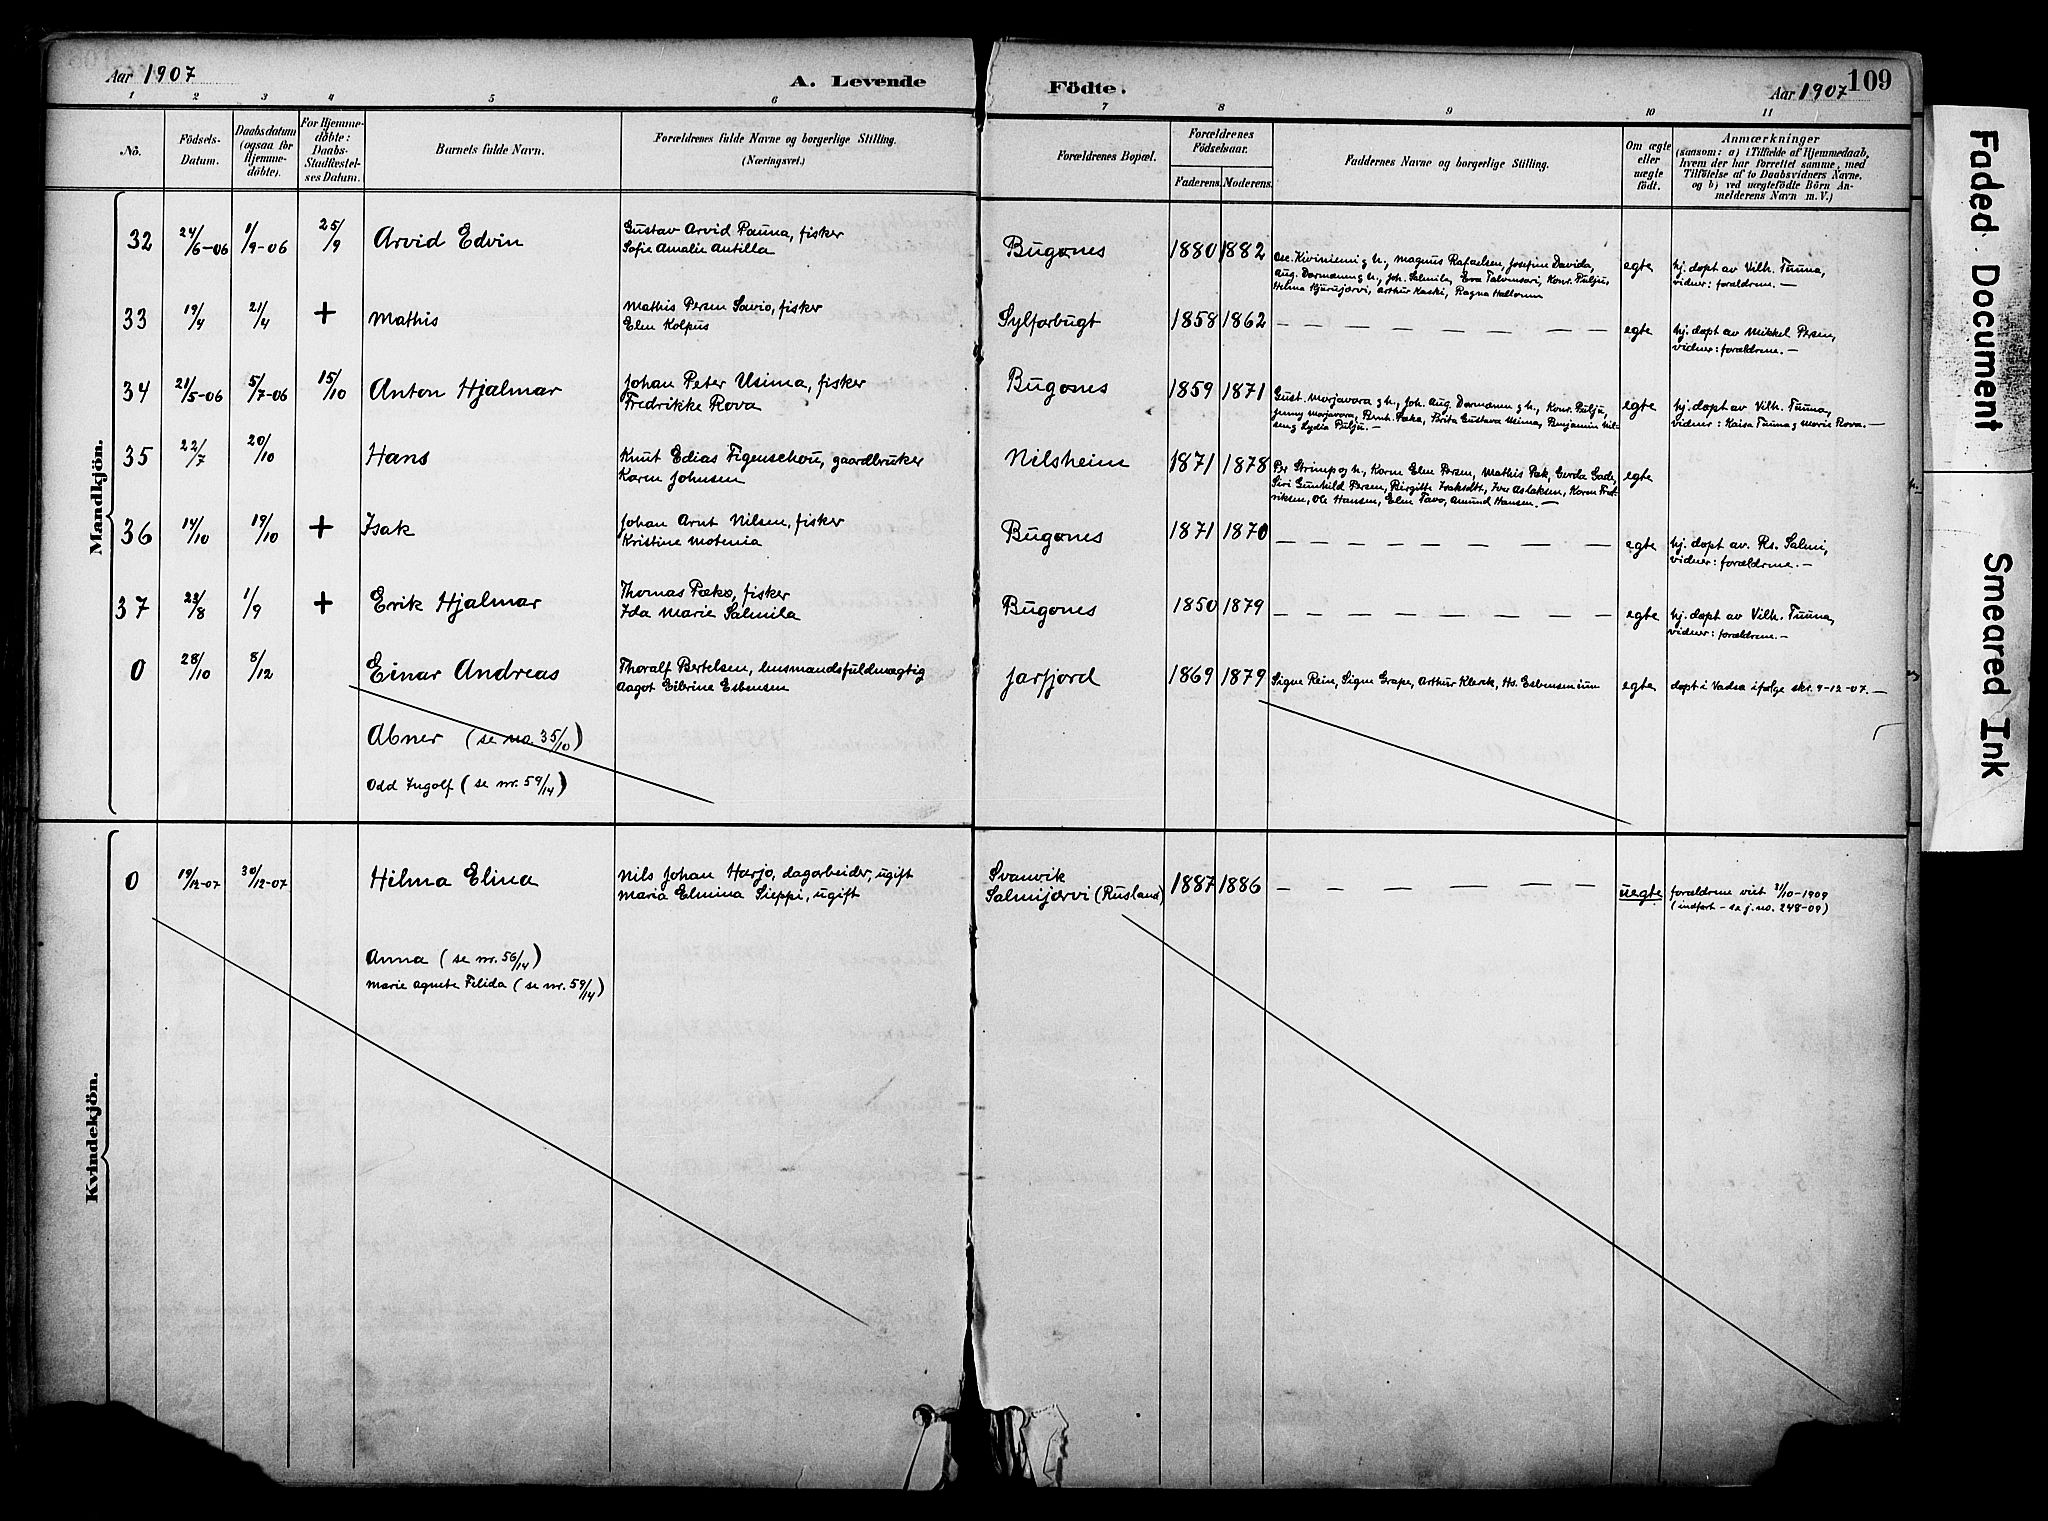 Aar 1907
A. Levende
Födte.
Aar 1907
109
1 2 3 4 5 6 7 8 9 10 11
No.
Födsels-
Datum.
Daabsdatum
(ogsaa for
Hjemme-
döbte).
For Hjemme-
döbte:
Daabs-
Stadfæstel-
ses Datum.
Barnets fulde Navn.
Forældrenes fulde Navne og borgerlige Stilling.
(Næringsvei.)
Forældrenes Bopæl.
Forældrenes
Födselsaar.
Faderens. Moderens.
Faddernes Navne og borgerlige Stilling.
Om ægte
eller
uægte
født.
Anmærkninger
(saasom: a) i Tilfælde af Hjemmedaab,
hvem der har forrettet samme, med
Tilföielse af to Daabsvidners Navne,
og b) ved uægtefödte Börn An-
melderens Navn m. V.)
Mandkjön.
32 24/6-06 1/9-06 25/9 Arvid Edvin
Gustav Arvid Pauna, fisker
Sofie Amalie Antilla
Bugønes 1880 1882
magnus Rafaelsen, Josefine Davida,
Joh. Salmila, Eva Talvensari, Konr. Pulju,
Arthur Kaski, Ragna
egte
hj. døpt av Vilh. Tuuna,
vidner: forældrene. —
33 19/4 21/4 + Mathis
Mathis Persen Savio, fisker
Elen Kolpus
Sylforbugt 1858 1862 — — — — — — — —
egte
hj. døpt av Mikkel Persen,
vidner: forældrene. —
34 21/5-06 5/7-06 15/10 Anton Hjalmar
Johan Peter Usima, fisker
Fredrikke Rova
Bugønes 1859 1871
Gust. Morjavara og h., Joh. Aug. Dormænen og h., Konr. Pulju,
Jenny Morjavara, Brita Gustava Usima, Benjamin Nil-
sen, Lydia Pulju. —
egte
hj. døpt av Vilh. Tuuna,
vidner: Kaisa Tuuna og Marie Rova. —
35 22/7 20/10 Hans
Knut Edias Figenschou, gaardbruker
Karen Johnsen
Nilsheim 1871 1878
Per Strimp og h., Karen Elen Persen, Mathis Pæk, Gerda Gade,
Siri Gunhild Persen, Birgitte Isaksdtr., Iver Aslaksen, Karen Fred-
riksen, Ole Hansen, Elen Tavo, Amund Hansen. —
egte
36 14/10 19/10 + Isak
Johan Arnt Nilsen, fisker
Kristine Motenia
Bugønes 1871 1870 — — — — — — — —
egte
hj. døpt av. Rs. Salmi,
vidner: forældrene. —
37 23/8 1/9 + Erik Hjalmar
Thomas Pæko, fisker
Ida Marie Salmila
Bugønes 1850 1879 — — — — — — — —
egte
hj. døpt av Vilh. Tuuna,
vidner: forældrene. —
0 28/10 8/12 Einar Andreas
Thoralf Bertelsen, lensmandsfuldmægtig
Aagot Eilerine Esbensen
Jarfjord 1869 1879
Signe Rein, Signe Grape, Arthur Klerck, Hs. Esbensen jun
egte
døpt i Vadsø ifølge skr. 9-12-07. —
Abner (se no 35/10)
Odd Ingolf (se nr. 59/14)
Kvindekjön.
0 19/12-07 30/12-07 Hilma Elina
Nils Johan Harjo, dagarbeider, ugift
Maria Elmina Sieppi, ugift
Svanvik
Salmijærvi (Rusland)
1887 1886 — — — — — — — —
uegte
forældrene viet 31/10-1909
(indført - se j. no. 248-09)
Anna (se nr. 56/14)
Marie Agnete Felida (se nr. 59/14)
Faded Document
Smeared Ink